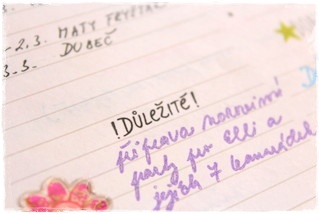 -2.3. MATY FRYŠTAC
DUBEČ
3-3.
! DŮLEŽITÉ!
příprava narozeninové
party pro Elli a
jejich 7 kamarádek